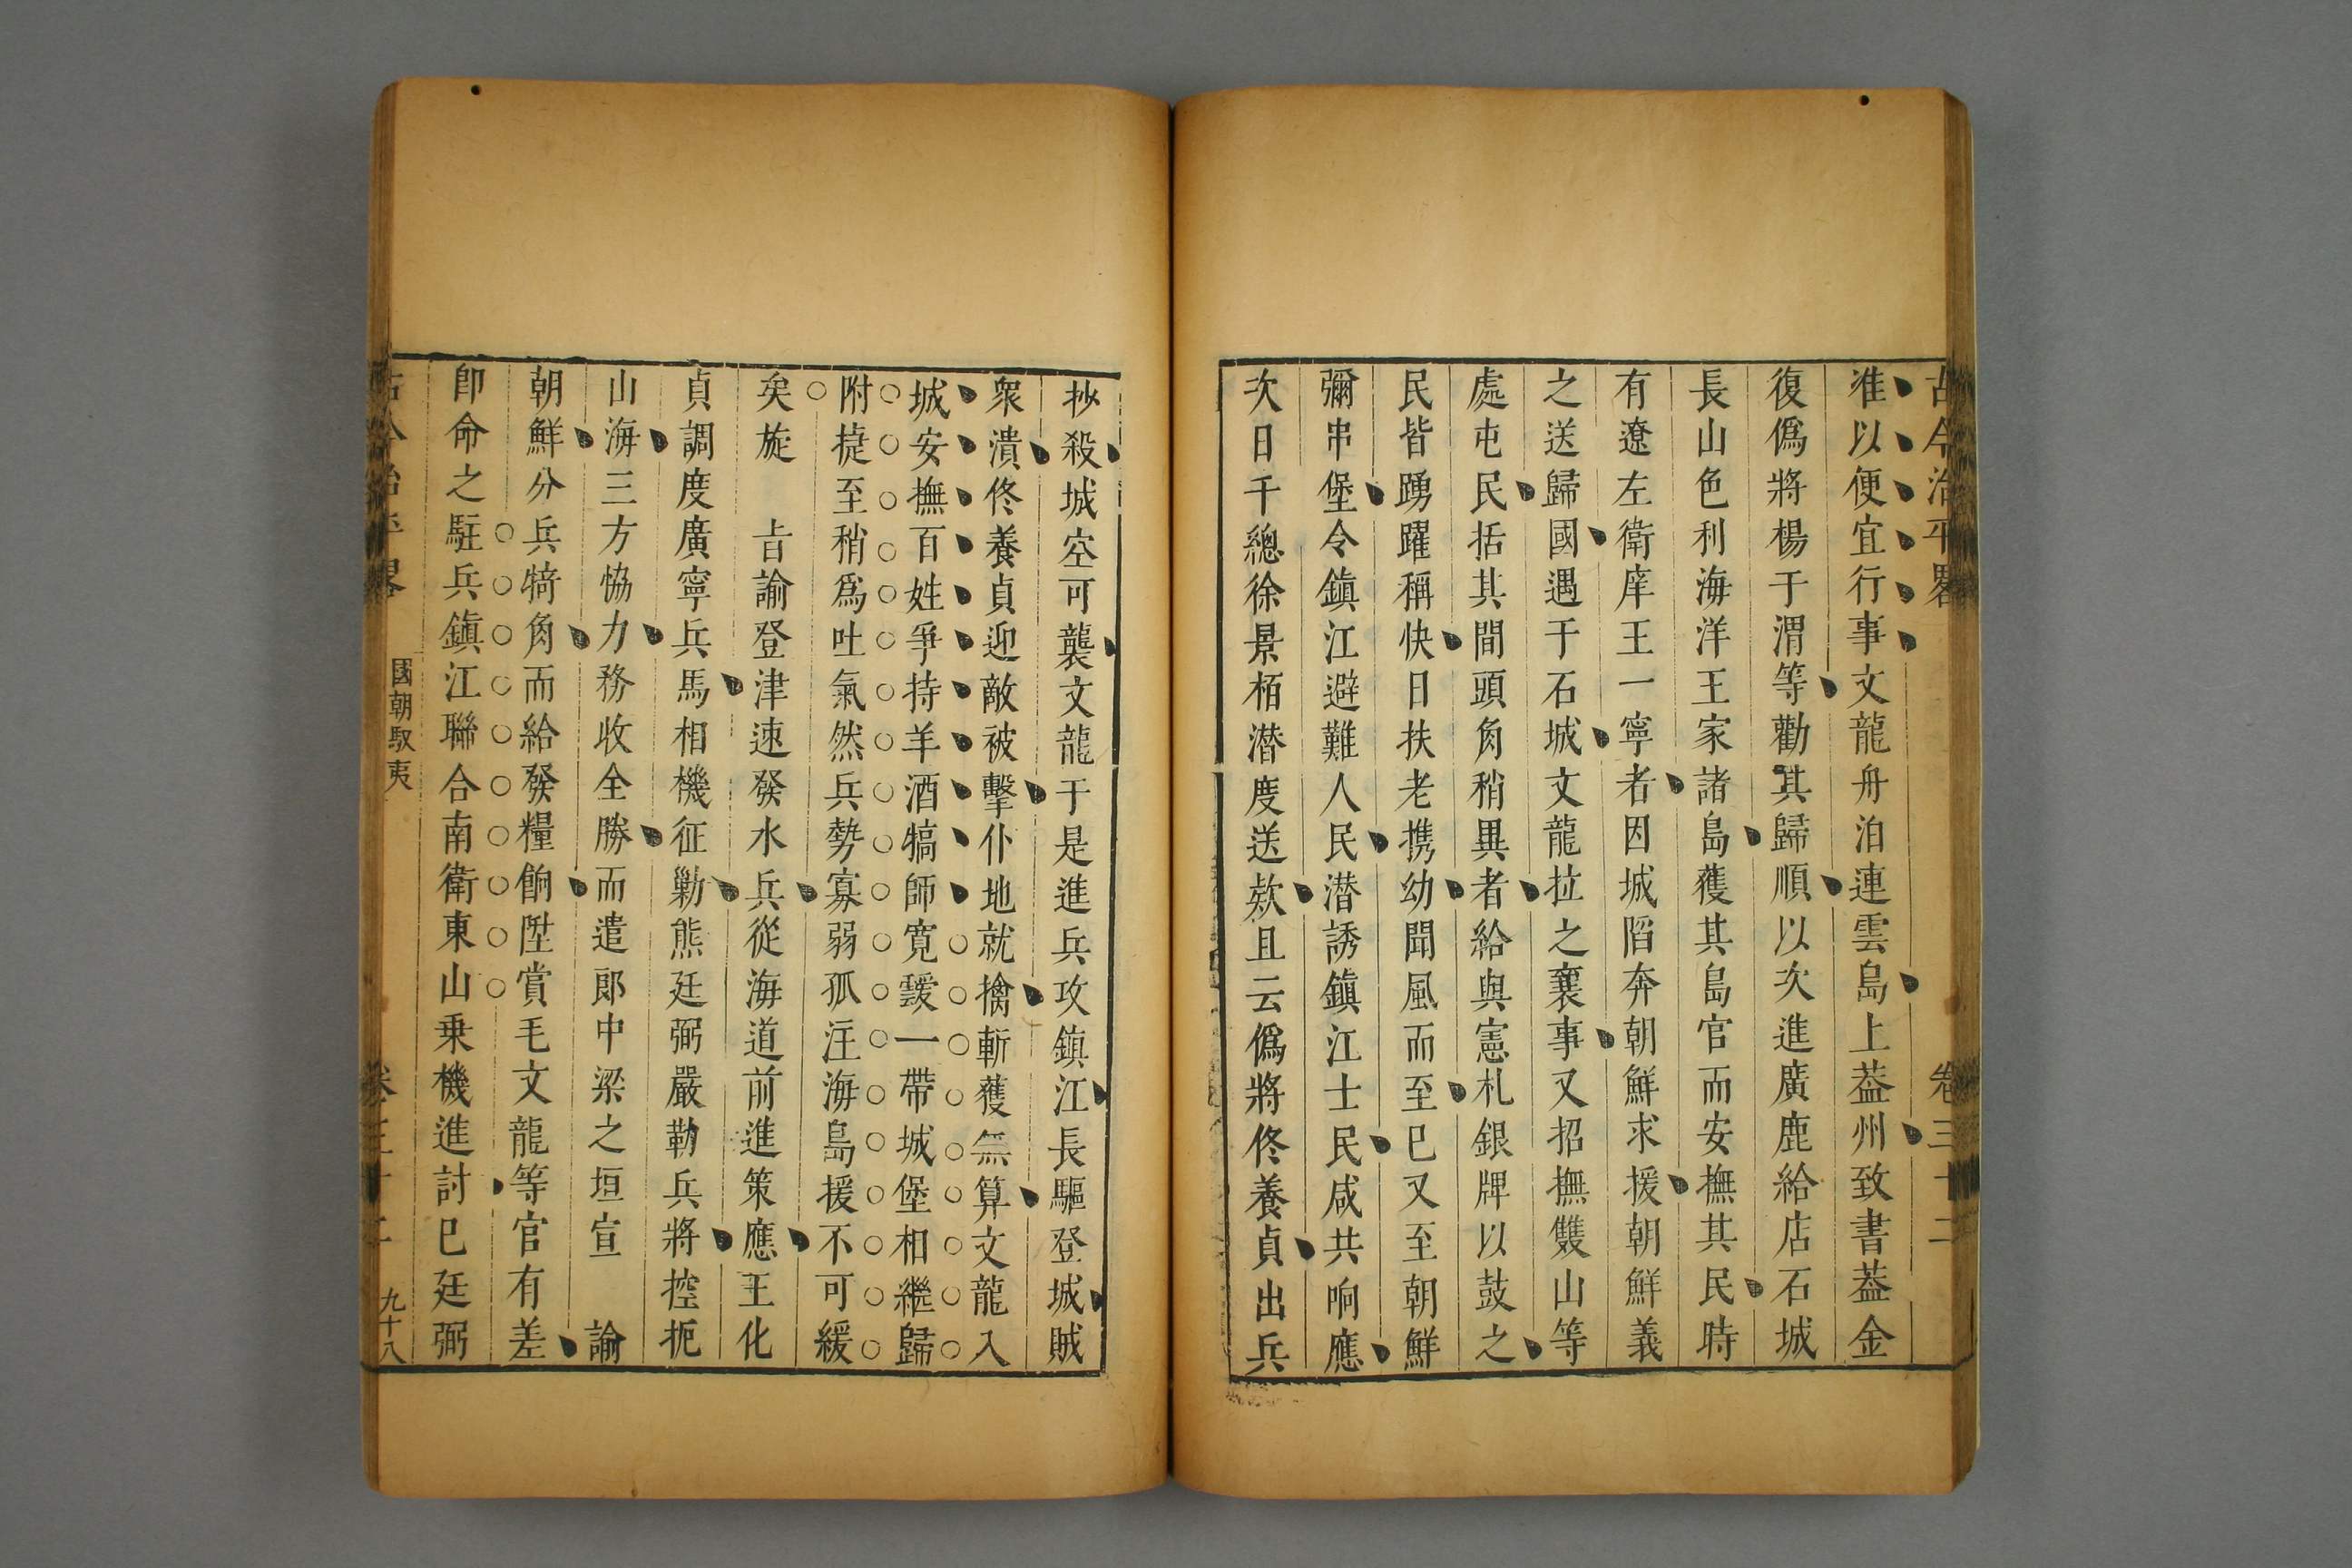 古今治平畧 卷三十二
准以便宜行事文龍舟泊連雲島上葢州致書葢金
復僞將楊于渭等勸其歸順以次進廣鹿給店石城
長山色利海洋王家諸島獲其島官而安撫其民時
有遼左衛庠王一寧者因城䧟奔朝鮮求援朝鮮義
之送歸國遇于石城文龍拉之襄事又招撫雙山等
處屯民括其間頭角稍異者給與憲札銀牌以鼓之
民皆踴躍稱快日扶老携幼聞風而至巳又至朝鮮
彌串堡令鎮江避難人民潜誘鎮江士民咸共响應
次日千總徐景栢潜度送欵且云僞將佟養貞出兵
抄殺城空可襲文龍于是進兵攻鎮江長驅登城賊
衆潰佟養貞迎敵被擊仆地就擒斬獲無算文龍入
城安撫百姓爭持羊酒犒師寛靉一帶城堡相繼歸
附㨗至稍爲吐氣然兵勢寡弱孤注海島援不可緩
矣旋 上旨諭登津速發水兵從海道前進策應王化
貞調度廣寧兵馬相機征勦熊廷弼嚴勒兵將控扼
山海三方恊力務收全勝而遣郎中梁之垣宣 諭
朝鮮分兵犄角而給發糧餉陞賞毛文龍等官有差
卽命之駐兵鎮江聯合南衛東山乗機進討巳廷弼
古今治平畧 國朝馭夷 卷三十二 九十八